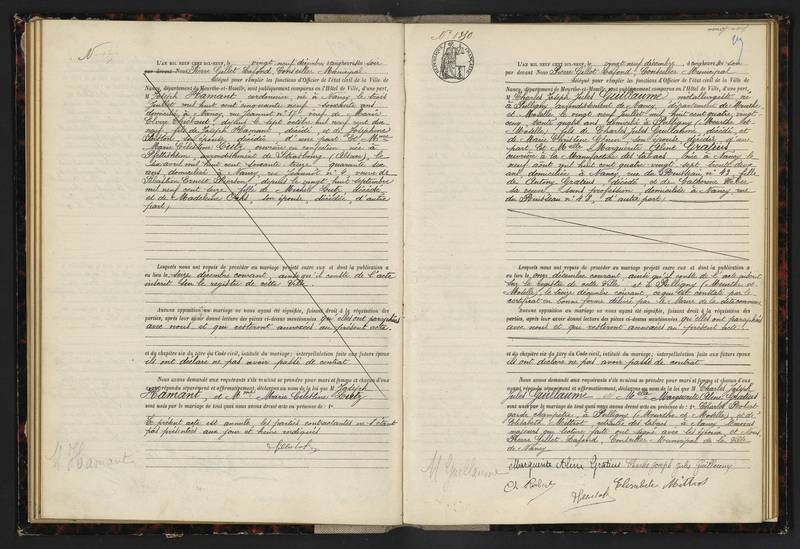 L'AN MIL NEUF CENT DIX-NEUF, le vingt neuf décembre, à cinq heures du soir
par devant Nous Pierre Gillet Lafond, Conseiller Municipal
délégué pour remplir les fonctions d'Officier de l'état civil de la Ville de
Nancy, département de Meurthe-et-Moselle, sont publiquement comparus en l'Hôtel de Ville, d'une part,
M. Joseph Hamant, cordonnier, né à Nancy, le
juillet mil huit cent cinquante neuf, ans
domicilié à Nancy, rue Jeannot n° veuf de Marie
depuis le sept octobre mil neuf cent dix
neuf, fils de Joseph Hamant, décédé, et de Joséphine
son épouse, décédée, d'une part. Et Mme
Marie Célestine Lutz, ouvrière en confection, née à
arrondissement de Strasbourg (Alsace), le
six avril mil huit cent soixante
ans, domiciliée à Nancy, rue Jeannot n° 4, veuve de
Sébastien Ernest depuis le vingt huit septembre
mil neuf cent fille de Michel Lutz, décédé
et de Madeleine son épouse, décédée, d'autre
part.
Lesquels nous ont requis de procéder au mariage projeté entre eux et dont la publication a
eu lieu le seize décembre courant, ainsi qu'il conste de l'acte
inscrit sur le registre de cette Ville.
Aucune opposition au mariage ne nous ayant été signifiée, faisant droit à la réquisition des
parties, après leur avoir donné lecture des pièces ci-dessus mentionnées, qu'elles ont paraphées
avec nous et qui resteront annexées au présent acte,
et du chapitre six du titre du Code civil, intitulé du mariage; interpellation faite aux futurs époux
ils ont déclaré ne pas avoir passé de contrat.
Nous avons demandé aux requérants s'ils veulent se prendre pour mari et femme et chacun d'eux
ayant répondu séparément et affirmativement, déclarons au nom de la loi que M. Joseph
Hamant, et Mme Marie Célestine Lutz
sont unis par le mariage de tout quoi nous avons dressé acte en présence de 1°
Le présent acte est annulé, les parties contractantes ne s'étant
pas présentées aux jour et heure indiqués
M. Hamant
N° 1230
L'AN MIL NEUF CENT DIX-NEUF, le vingt neuf décembre, à cinq heures du soir
par devant Nous Pierre Gillet Lafond, Conseiller Municipal
délégué pour remplir les fonctions d'Officier de l'état civil de la Ville de
Nancy, département de Meurthe-et-Moselle, sont publiquement comparus en l'Hôtel de Ville, d'une part,
M. Charles Joseph Jules Guillaume, métallurgiste, né
à Pulligny, arrondissement de Nancy, département de Meurthe
et Moselle, le vingt neuf juillet mil huit cent quatre vingt
cinq, trente quatre ans, domicilié à Pulligny (Meurthe et
Moselle), fils de Charles Guillaume, décédé, et
de Marie Christine son épouse, décédée, d'une
part. Et Melle Marguerite Aline Gratius
ouvrière à la Manufacture des tabacs, née à Nancy, le
neuf août mil huit cent quatre vingt sept, trente deux
ans, domiciliée à Nancy, rue du Ruisseau, n° 43, fille
de Antony Gratius, décédé, et de Catherine
sa veuve, sans profession, domiciliée à Nancy, rue
du Ruisseau n° 43, d'autre part.
Lesquels nous ont requis de procéder au mariage projeté entre eux et dont la publication a
eu lieu le onze décembre courant, ainsi qu'il conste de l'acte inscrit
sur le registre de cette Ville et à Pulligny (Meurthe et
Moselle), le treize décembre courant, ce qui est constaté par le
certificat en bonne forme délivré par le Maire de la dite commune.
Aucune opposition au mariage ne nous ayant été signifiée, faisant droit à la réquisition des
parties, après leur avoir donné lecture des pièces ci-dessus mentionnées, qu'elles ont paraphées
avec nous et qui resteront annexées au présent acte,
et du chapitre six du titre du Code civil, intitulé du mariage; interpellation faite aux futurs époux
ils ont déclaré ne pas avoir passé de contrat.
Nous avons demandé aux requérants s'ils veulent se prendre pour mari et femme et chacun d'eux
ayant répondu séparément et affirmativement, déclarons au nom de la loi que M. Charles Joseph
Jules Guillaume et Melle Marguerite Aline Gratius
sont unis par le mariage de tout quoi nous avons dressé acte en présence de 1° Charles Robert
garde champêtre, à Pulligny (Meurthe et Moselle), et de
Elisabeth Mittrot, des tabacs, à Nancy, témoins
majeurs qui lecture faite ont signé avec les époux et Nous,
Pierre Gillet Lafond, Conseiller Municipal de la Ville
de Nancy.
Marguerite Aline Gratius Charles Joseph Jules Guillaume
Ch Robert
Elisabeth Mittrot
M Guillaume